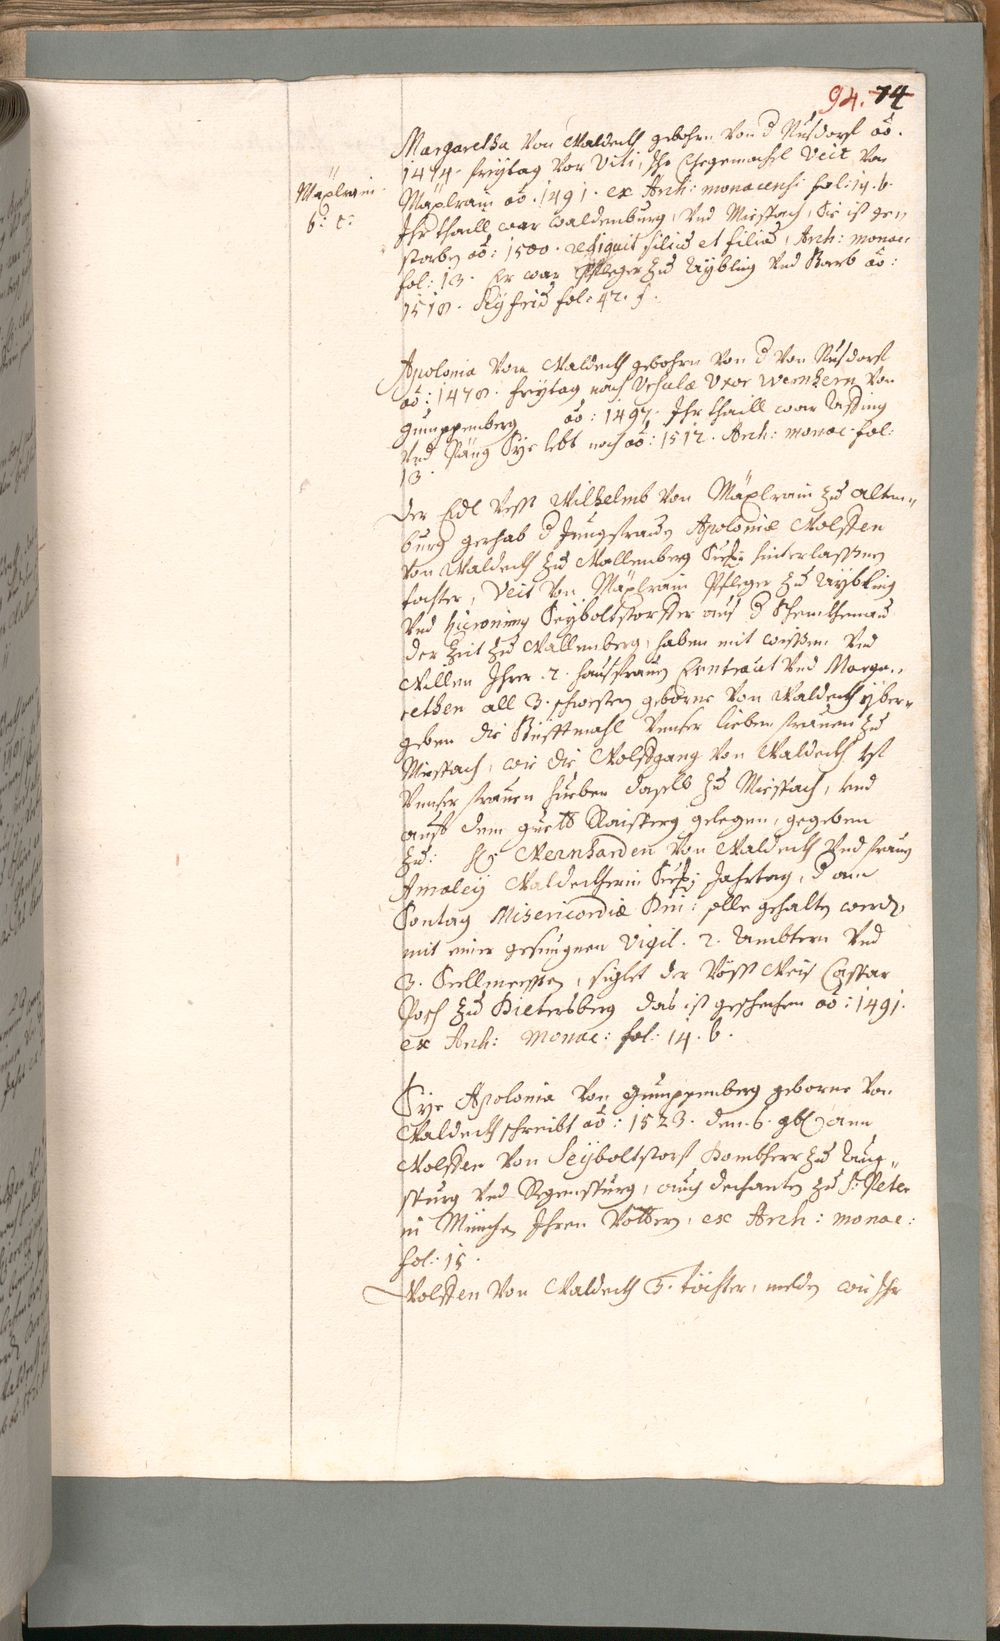 94. 74
Margaretha von Waldeckh gebohrn von d Nusdorf ao.
1474. freytag vor Viti, Ihr Ehegemachl Veit von
Mäxlrain ao. 1491. ex Arch: monacensi fol: 14. b.
Mäxlrain.
b. t:
Ihr thaill war Waldenburg, vnd Miespach, Sie ist ge,,
storben ao: 1500. reliquit filios et filias, Arch: monac:
fol: 13. Er war Pfleger zu Aybling vnd Barb ao:
1518. Hyfrid fol: 42. f.
Apolonia von Waldeckh gebohrn von d von Nusdorf
ao: 1478. freytag nach Vrsulæ Vxor Wernhern von
Gumppenberg ao: 1497. Ihr thaill war
vnd Päng Sye lebt noch ao: 1512. Arch: monac fol:
13.
Der Edl Vest Wilhelmb von Mäxlrain zu Alten,,
burg gerhab d Jungfrauen Apoloniæ Wolffen
von Waldeckh zu Wallenberg Seel: hinterlassnen
tochter, Veit von Mäxlrain Pfleger zu Aybling
vnd Hieronimy Seyboltstorffer aus d Schenkhenau
der Zeit zu Wallenberg, haben mit wissen vnd
Willen Ihrer 2. hausfrauen Erntraut vnd Marga,,
rethen all 3. schwestern geborne von Waldeckh yber,,
geben die vnser lieben frauen zu
Miespach, wie die Wolfgang von Waldeckh ist
vnser frauen hueben daselb zu Miespach, vnd
auf dem guett Raisperg gelegen, gegeben
zu: Hr. Wernharden von Waldeckh vnd frauen
Amaley Waldeckherin Seel: Jahrtag, d am
Sontag Misericordiæ Dni: solle gehalten werden,
mit einer gesungnen Vigil. 2. Ambtern vnd
3. Seellmessen, siglet der Vöst Weis Caspar
Posch zu Dietersberg das ist geschechen ao: 1491.
ex Arch: Monac: fol: 14. b.
Sye Apolonia von Gumppenberg geborne von
Waldeckh schreibt ao: 1523. den 6. 9b(r) ann
Wolffen von Seyboltstorf Dombherr zu Aug,,
spurg vnd Regenspurg, auch dechanten zu S: Peter
in München Ihren Vöttern, ex Arch: monac:
fol: 15.
Wolffen von Waldeckh 3. töchter, melden wie Ihr